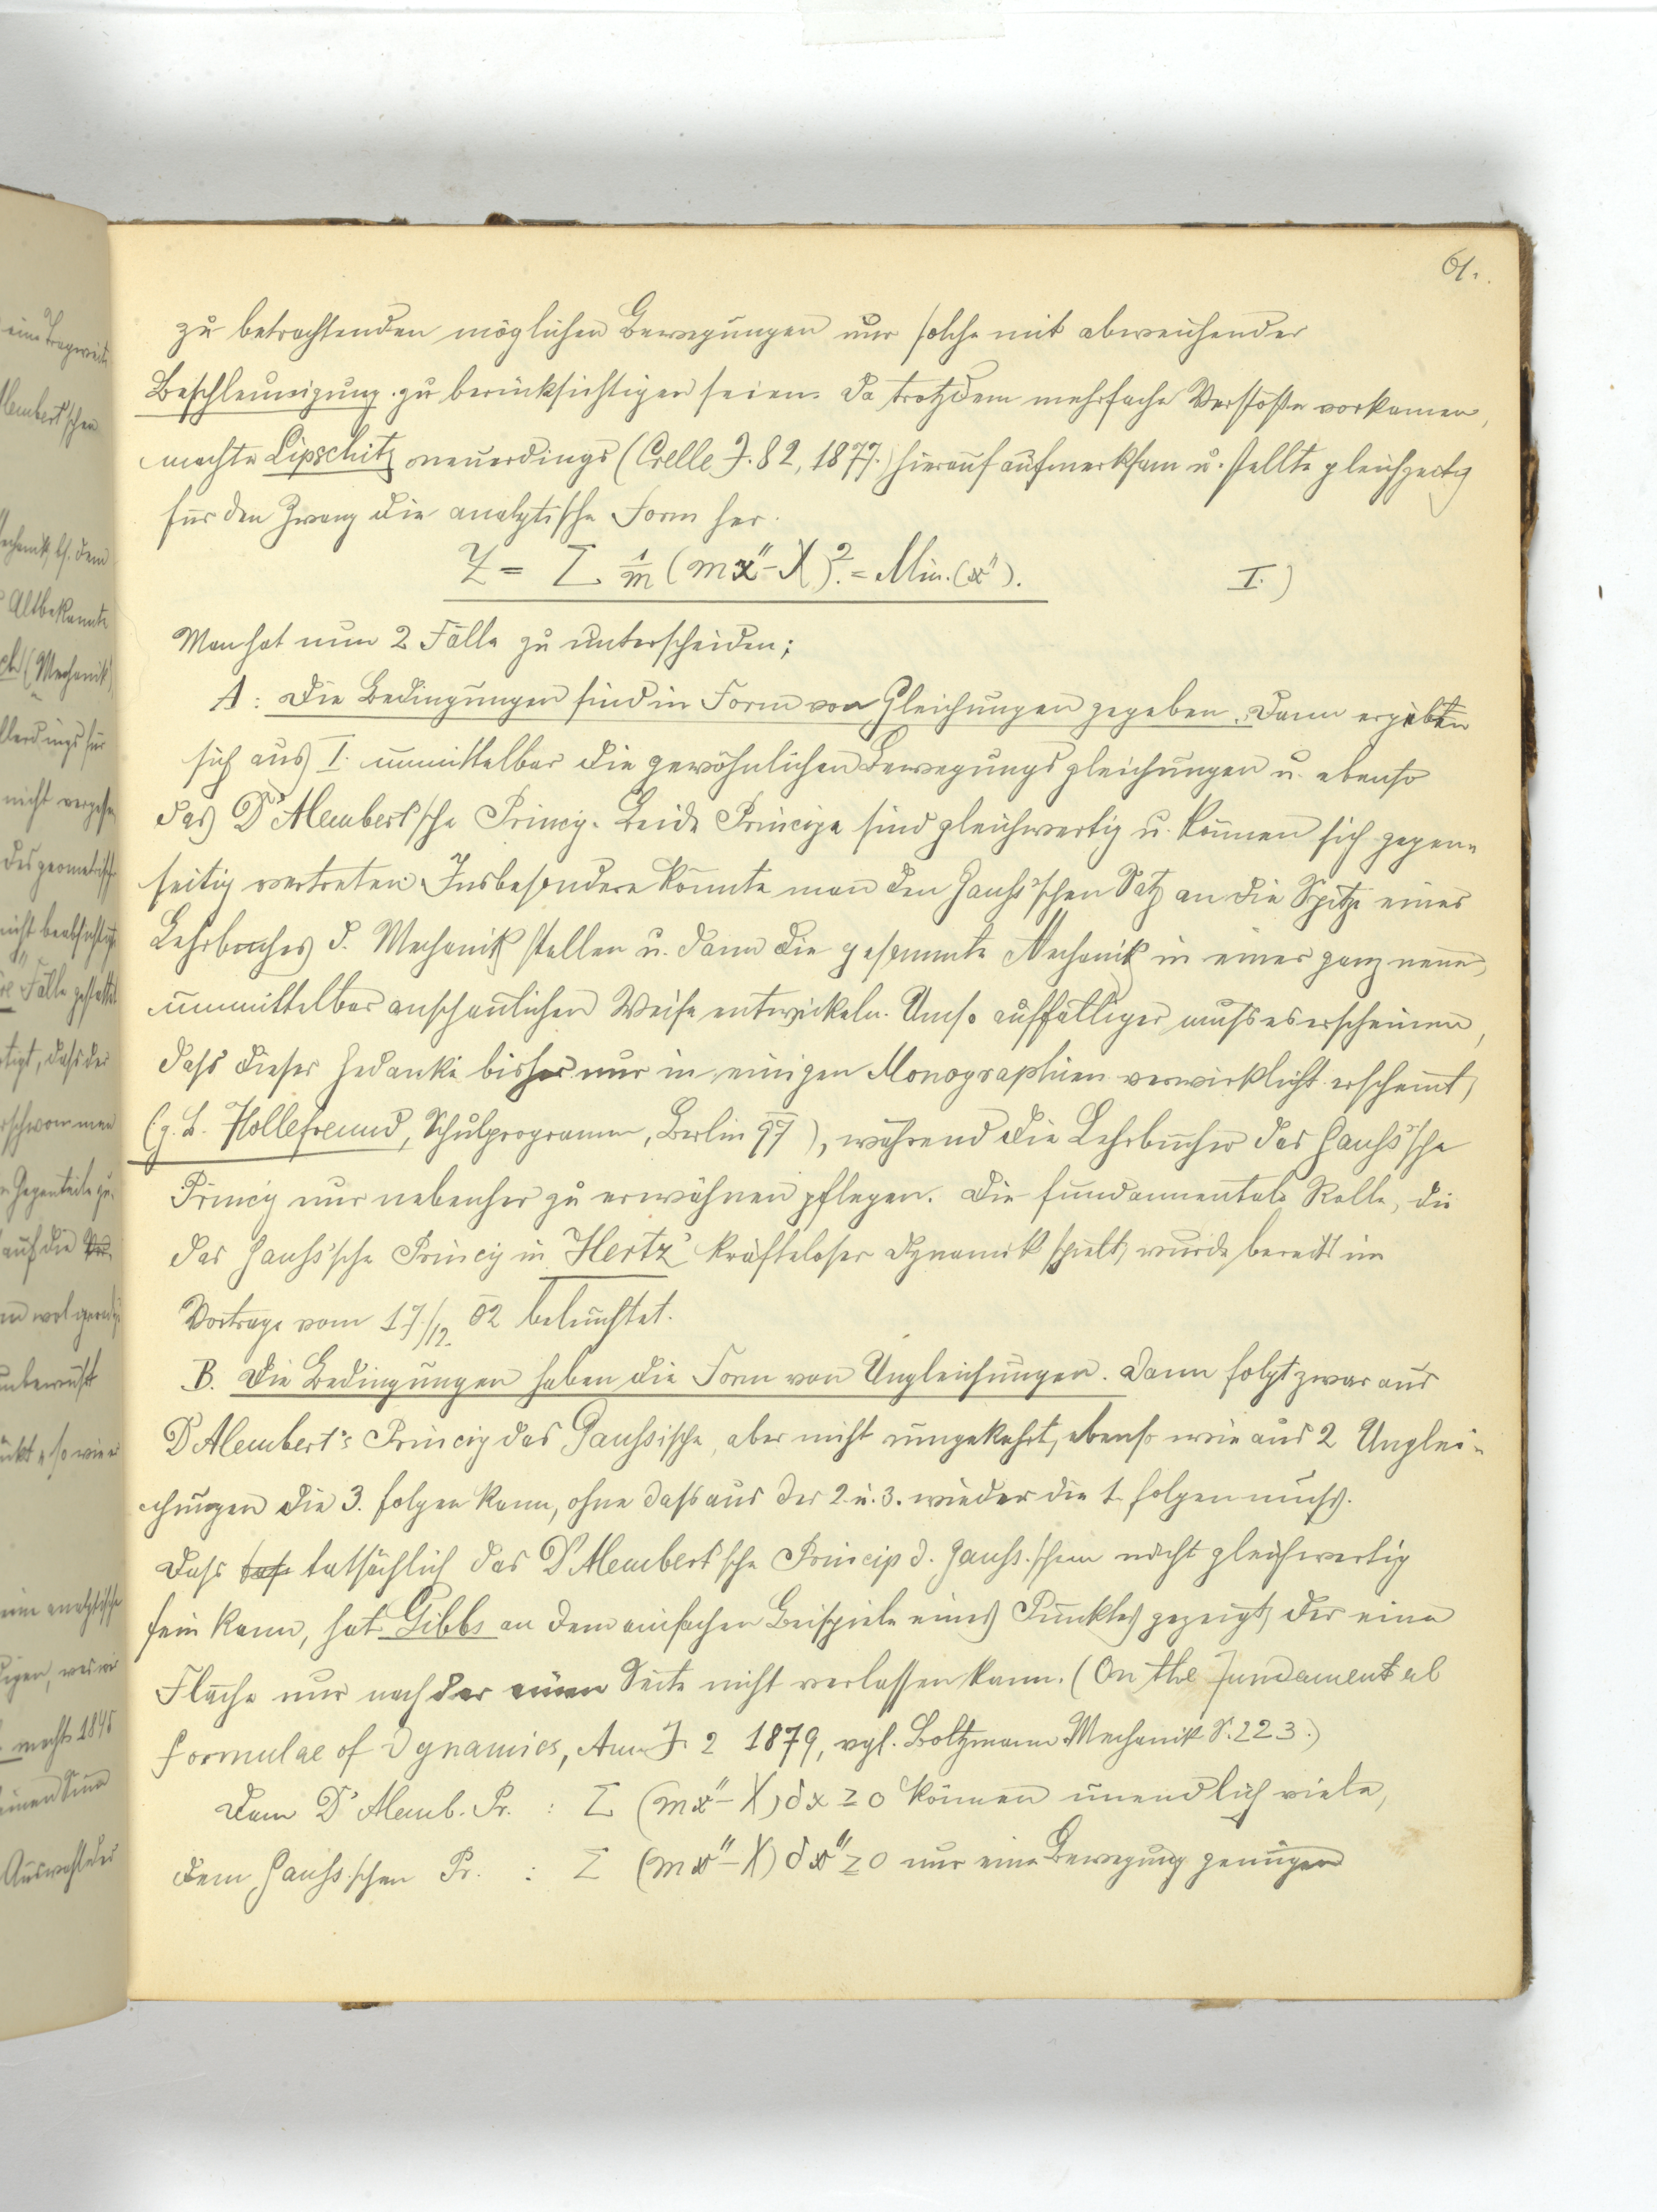 61.
zu betrachtenden möglichen Bewegungen nur solche mit abweichender
Beschleunigung zu berücksichtigen seien. Da trotzdem mehrfache Verstöße vorkamen,
machte Lipschitz neuerdings (Crelle J. 82, 1877.) hierauf aufmerksam u. stellte gleichzeitig
für den Zwang die analytische Form her.
Z = Σ 1/m (mx'' - X)². = Min. (x''). I.)
Man hat nun 2 Fälle zu unterscheiden;
A: Die Bedingungen sind in Form von Gleichungen gegeben. Dann ergeben
sich aus I. unmittelbar die gewöhnlichen Bewegungsgleichungen u. ebenso
das D'Alembert'sche Princip. Beide Principe sind gleichwertig u. können sich gegen-
seitig vertreten. Insbesondere könnte man den Gauhs'schen Satz an die Spitze eines
Lehrbuches d. Mechanik stellen u. dann die gesammte Mechanik in einer ganz neuen,
unmittelbar anschaulichen Weise entwickeln. Umso auffälliger muhs es erscheinen,
dahs dieser Gedanke bisher nur in einigen Monographien verwirklicht erscheint,
(z. B. Hollefreund, Schulprogramm, Berlin 97), während die Lehrbücher das Gauhs'sche
Princip nur nebenher zu erwähnen pflegen. Die fundamentale Rolle, die
das Gauhs'sche Princip in Hertz' kräfteloser Dynamik spielt, wurde bereits im
Vortrage vom 17./12. 02 beleuchtet.
B. Die Bedingungen haben die Form von Ungleichungen. Dann folgt zwar aus
D'Alembert's Princip das Gauhsische, aber nicht umgekehrt, ebenso wie aus 2 Unglei-
chungen die 3. folgen kann, ohne dahs aus der 2. u. 3. wieder die 1. folgen muhs.
Dahs tatsächlich das D'Alembert'sche Princip d. Gauhs.schen nicht gleichwertig
sein kann, hat Gibbs an dem einfachen Beispiele eines Punktes gezeigt, der eine
Fläche nur nach der einen Seite nicht verlassen kann. (On the fundamental
formulae of Dynamics, Am. J. 2 1879, vgl. Boltzmann Mechanik S. 223.)
Dem D'Alemb. Pr. : Σ (mx'' - X) δx ≥ 0 können unendlich viele,
dem Gauhs.schen Pr. : Σ (mx'' - X) δx'' ≥ 0 nur eine Bewegung genügen